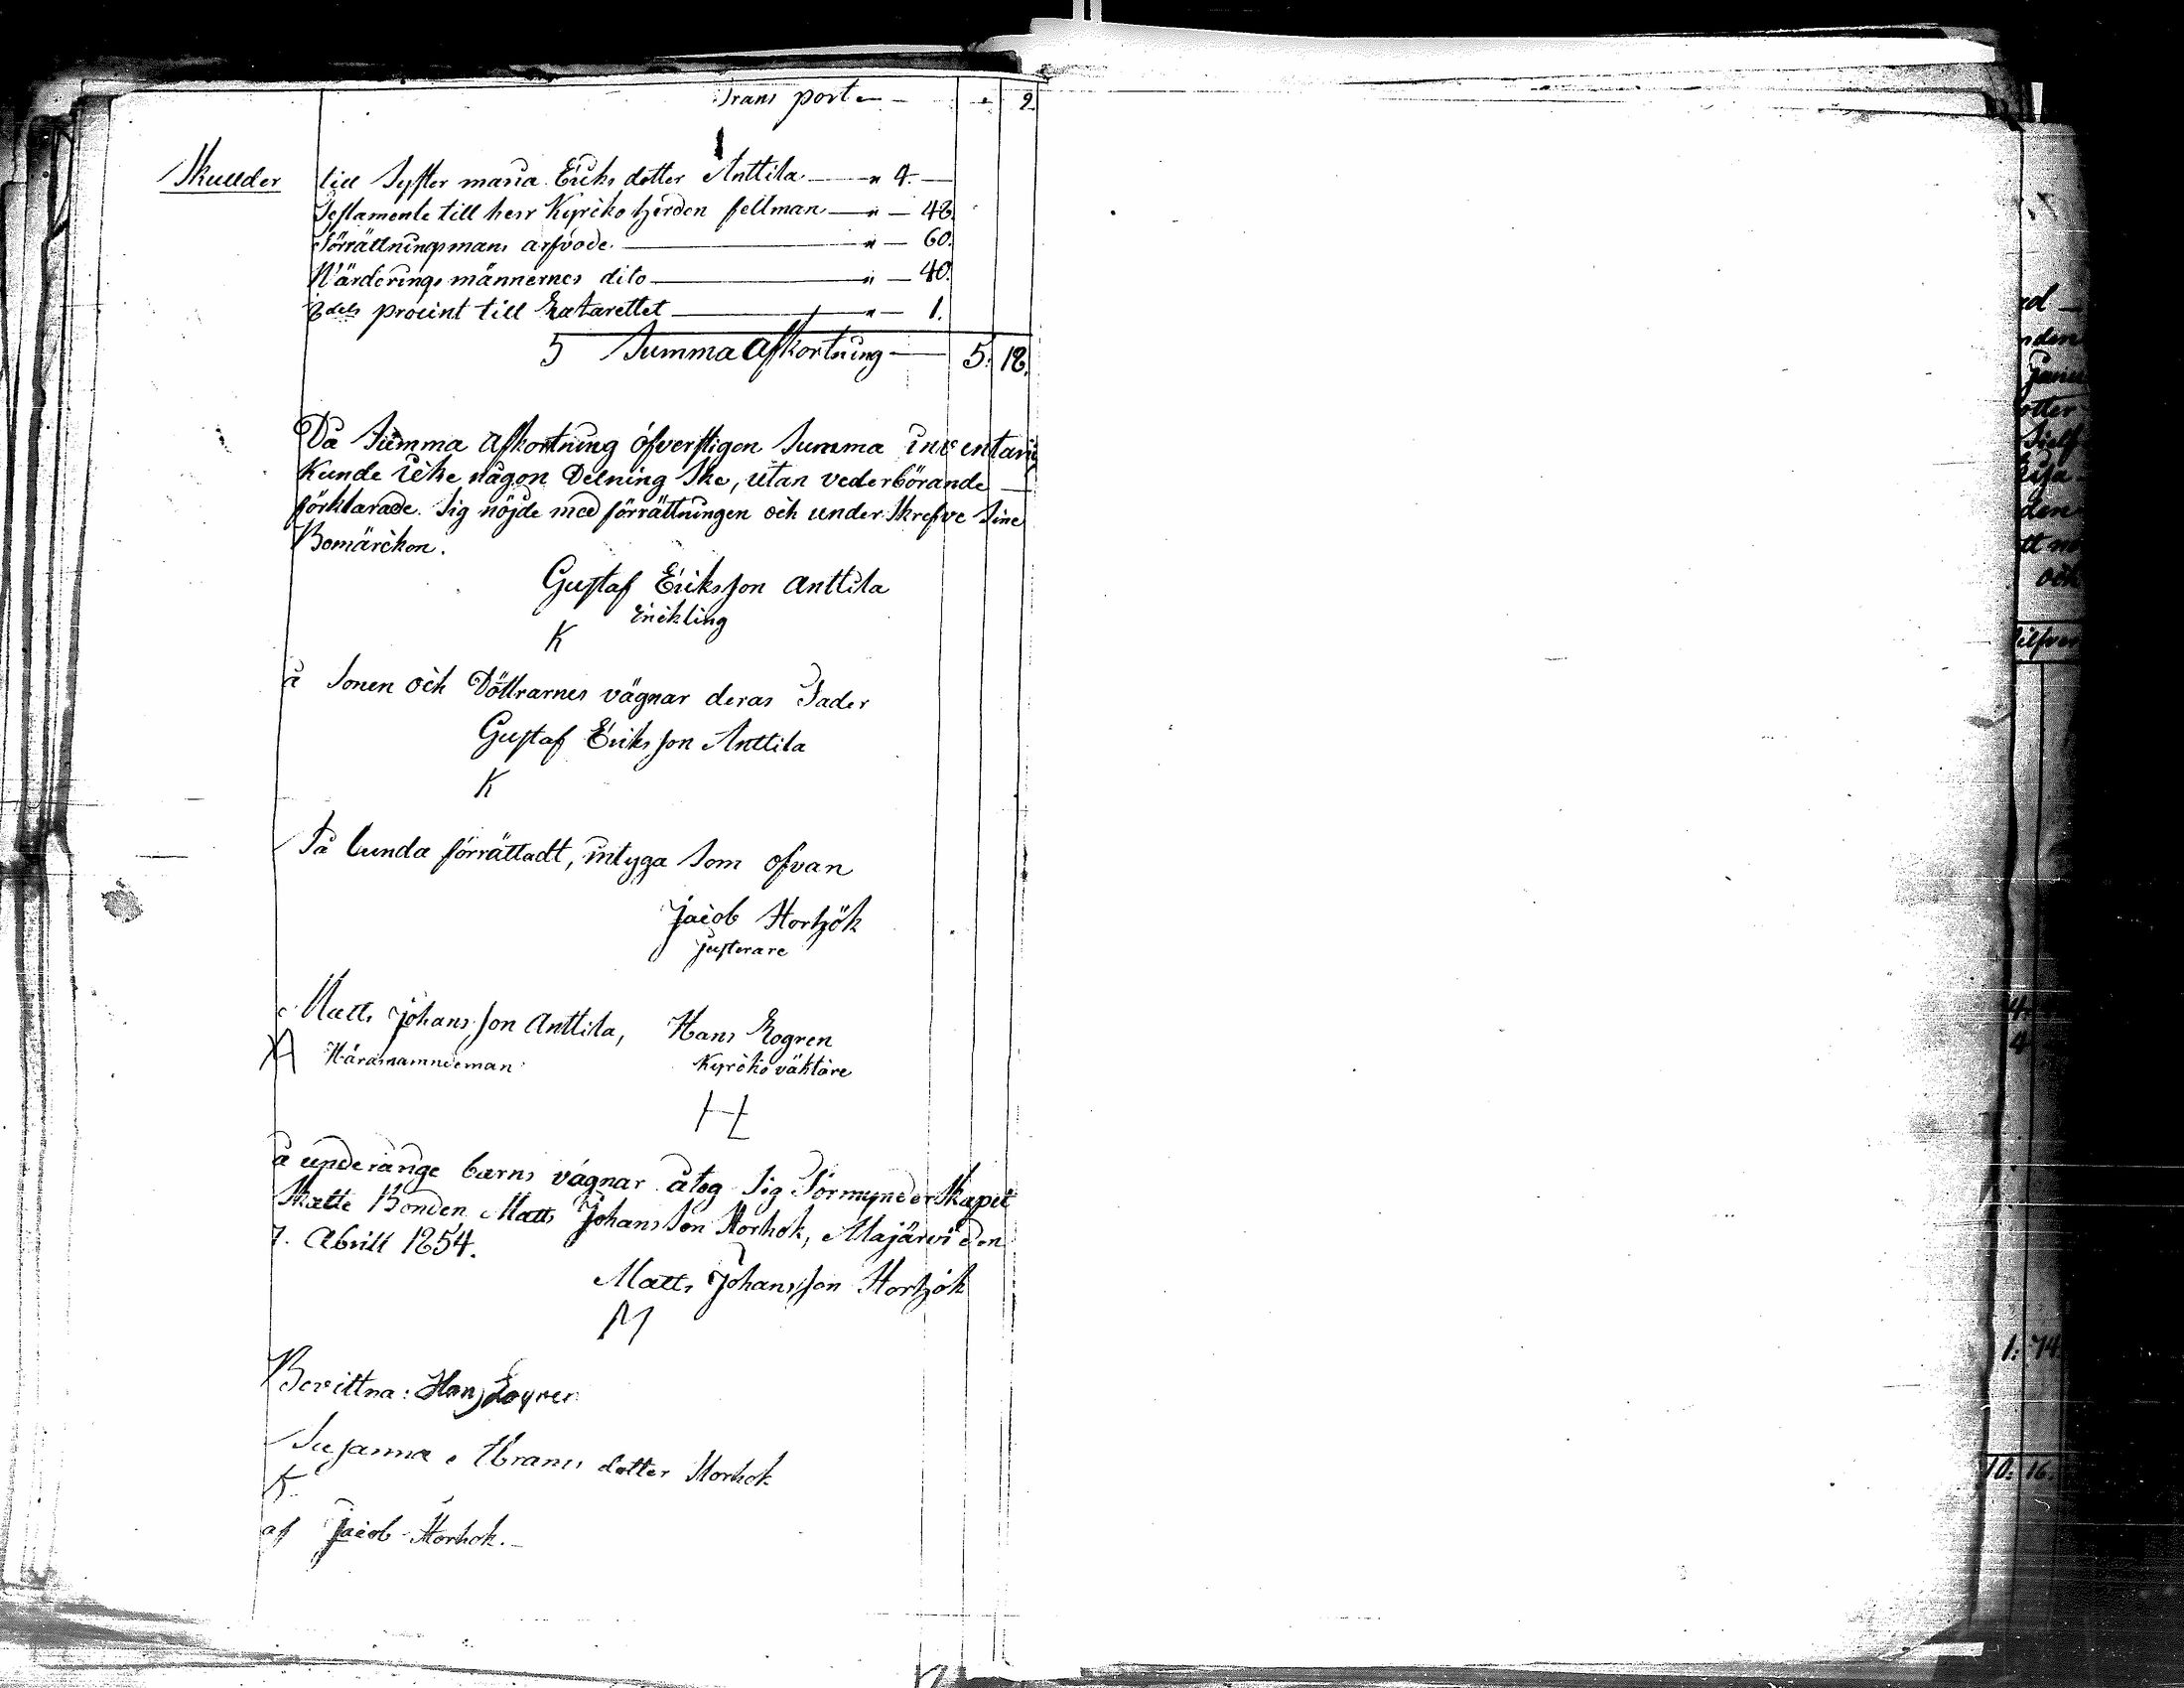 Transport — - " 9
Skullder till Syster maria Erichs dotter Anttila — " 4. —
Testamente till herr Kyrcko herden fellman — " — 48.
Förrättningsmans arfvode. — " — 60.
Wärderings männernes dito — " — 40.
procint till Lazarettet — " — 1.
5 Summa Afkortning — 5. 18.
Då Summa Afkortning öfverstigen Summa inventarii
Kunde icke någon Delning Ske, utan vederbörande —
förklarade Sig nöjde med förrättningen och under Skrefve Sine
Bomärckon.
Gustaf Ericksson Anttila
Enckling
K
å Sonen och Döttrarnes vägnar deras Fader
Gustaf Ericksson Anttila
K
Så lunda förrättadt, intyga Som ofvan
Jacob Storhök
justerare
Matts Johansson Anttila, Hans Rogren
Häradsnämndeman Kyrcko väktare
H
å underånge barns vägnar åtog Sig Förmynderskapet
Skatte Bonden Matts Johansson Storhok, Alajärvi den
7. Abrill 1854.
Matts Johansson Storhök
M
Bevittna: Hans Rogren
Susanna Abrams dotter Storhok
K
af Jacob Storhok. —
ilfver
4.
4
1. 74
10. 16.